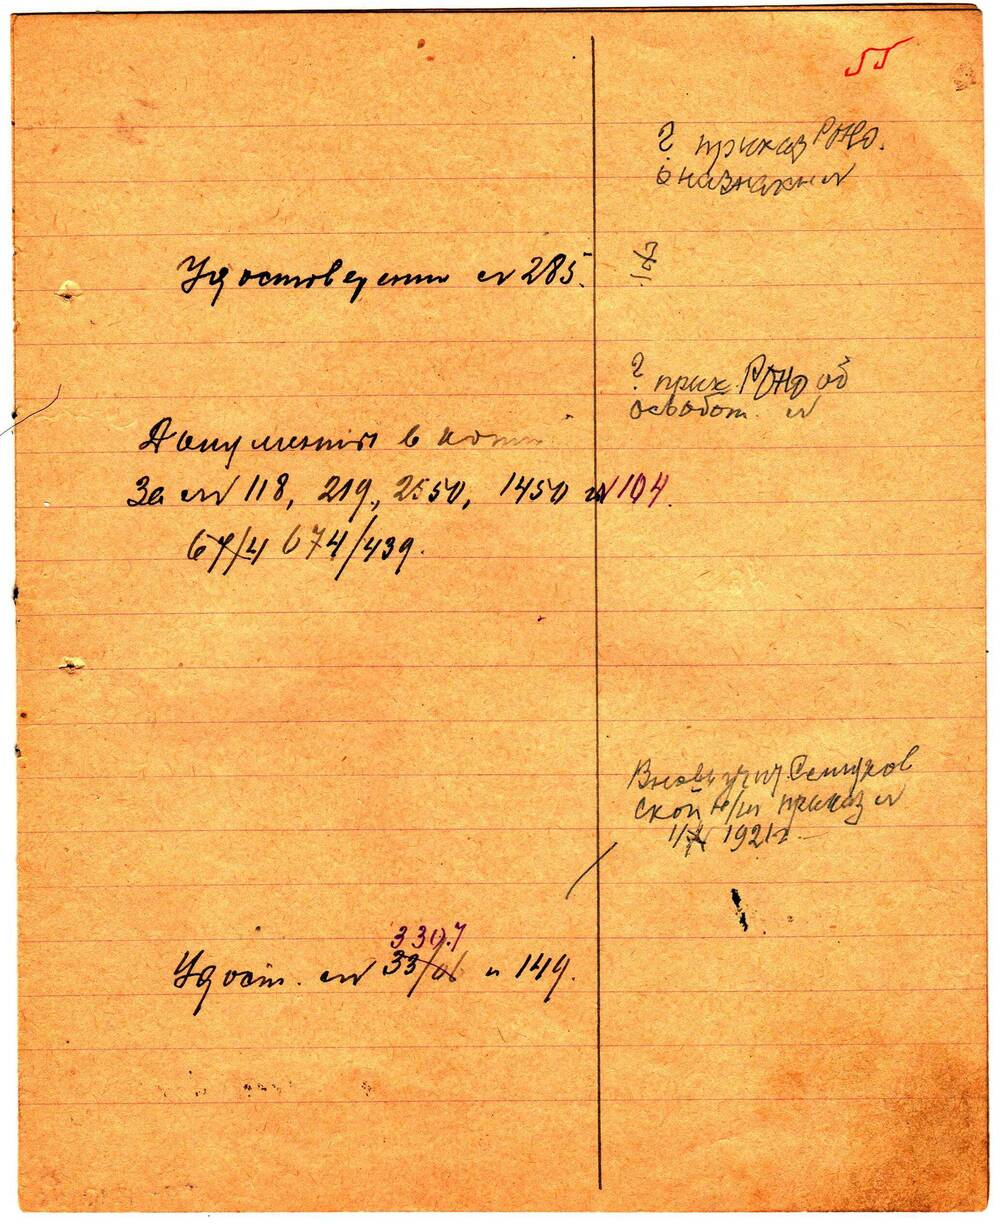 55
? приказ РОНО.
о назначении №
Удостоверение № 285.
? прик. РОНО об
освобож. №
Документы в копии
За №№ 118, 219, 2550, 1450 и 104.
674/439.
Вновь учит. Семуков
ской н/ш приказ №
1921 г.
3397
Удост. №№ 33/06 и 149.